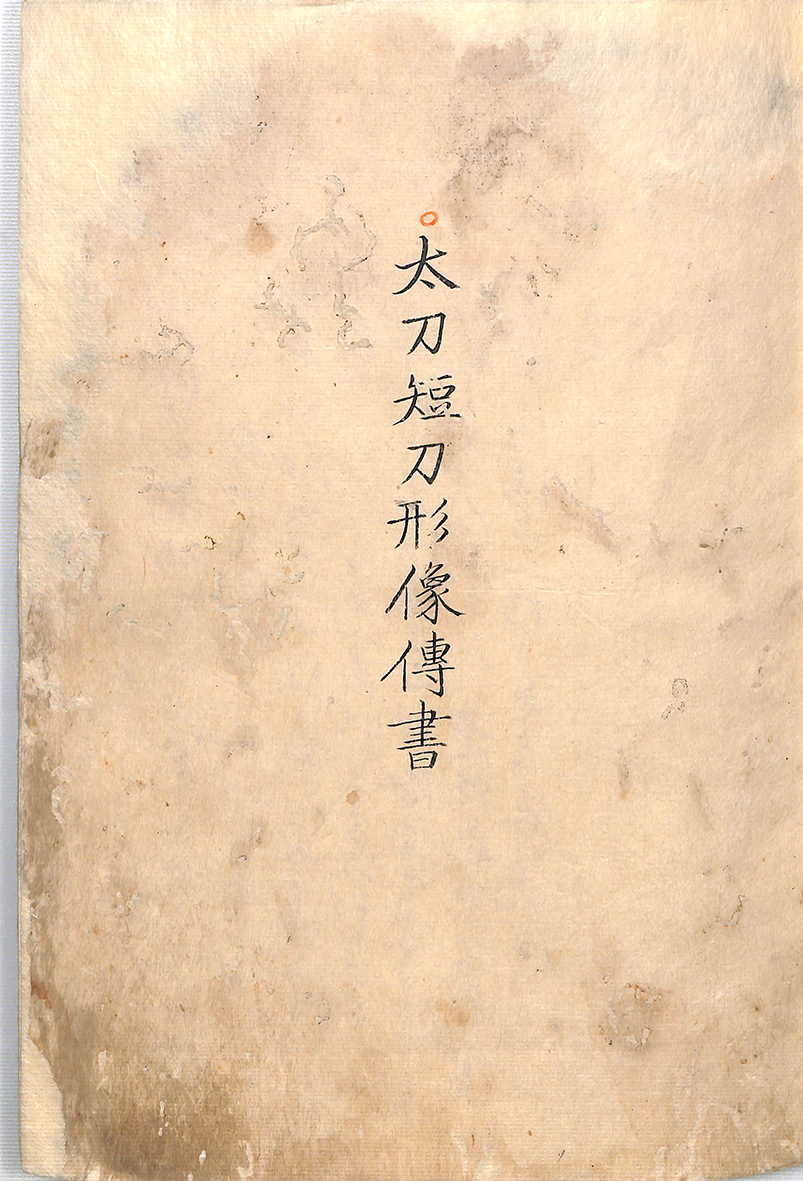 太刀短刀形像傳書